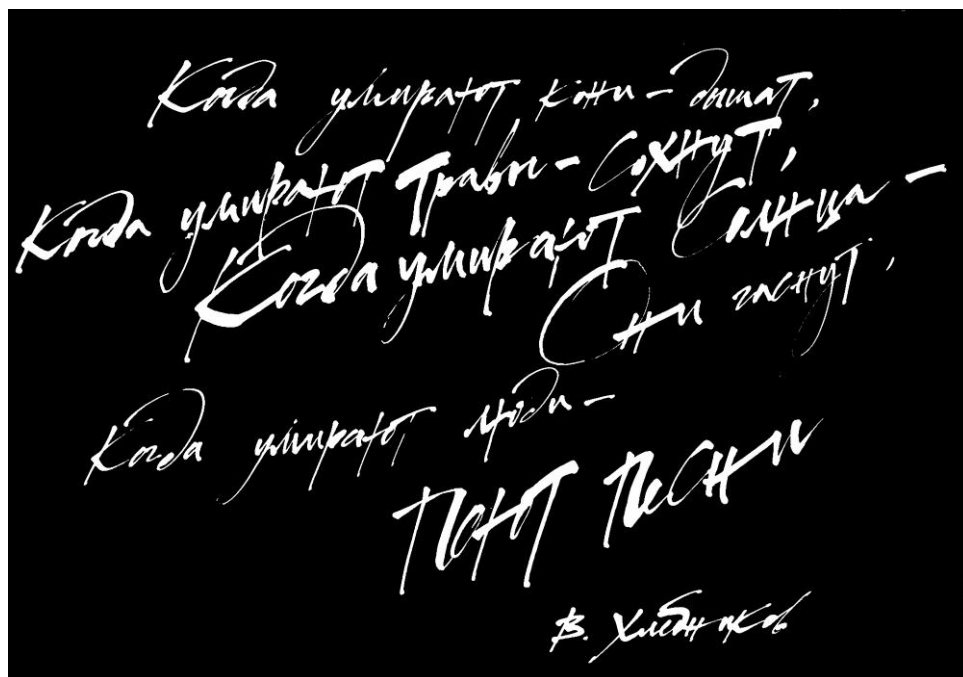 Когда умирают кони – дышат,
Когда умирают травы – Сохнут,
Когда умирают Солнца –
Они гаснут,
Когда умирают люди –
Поют Песни
В. Хлебников